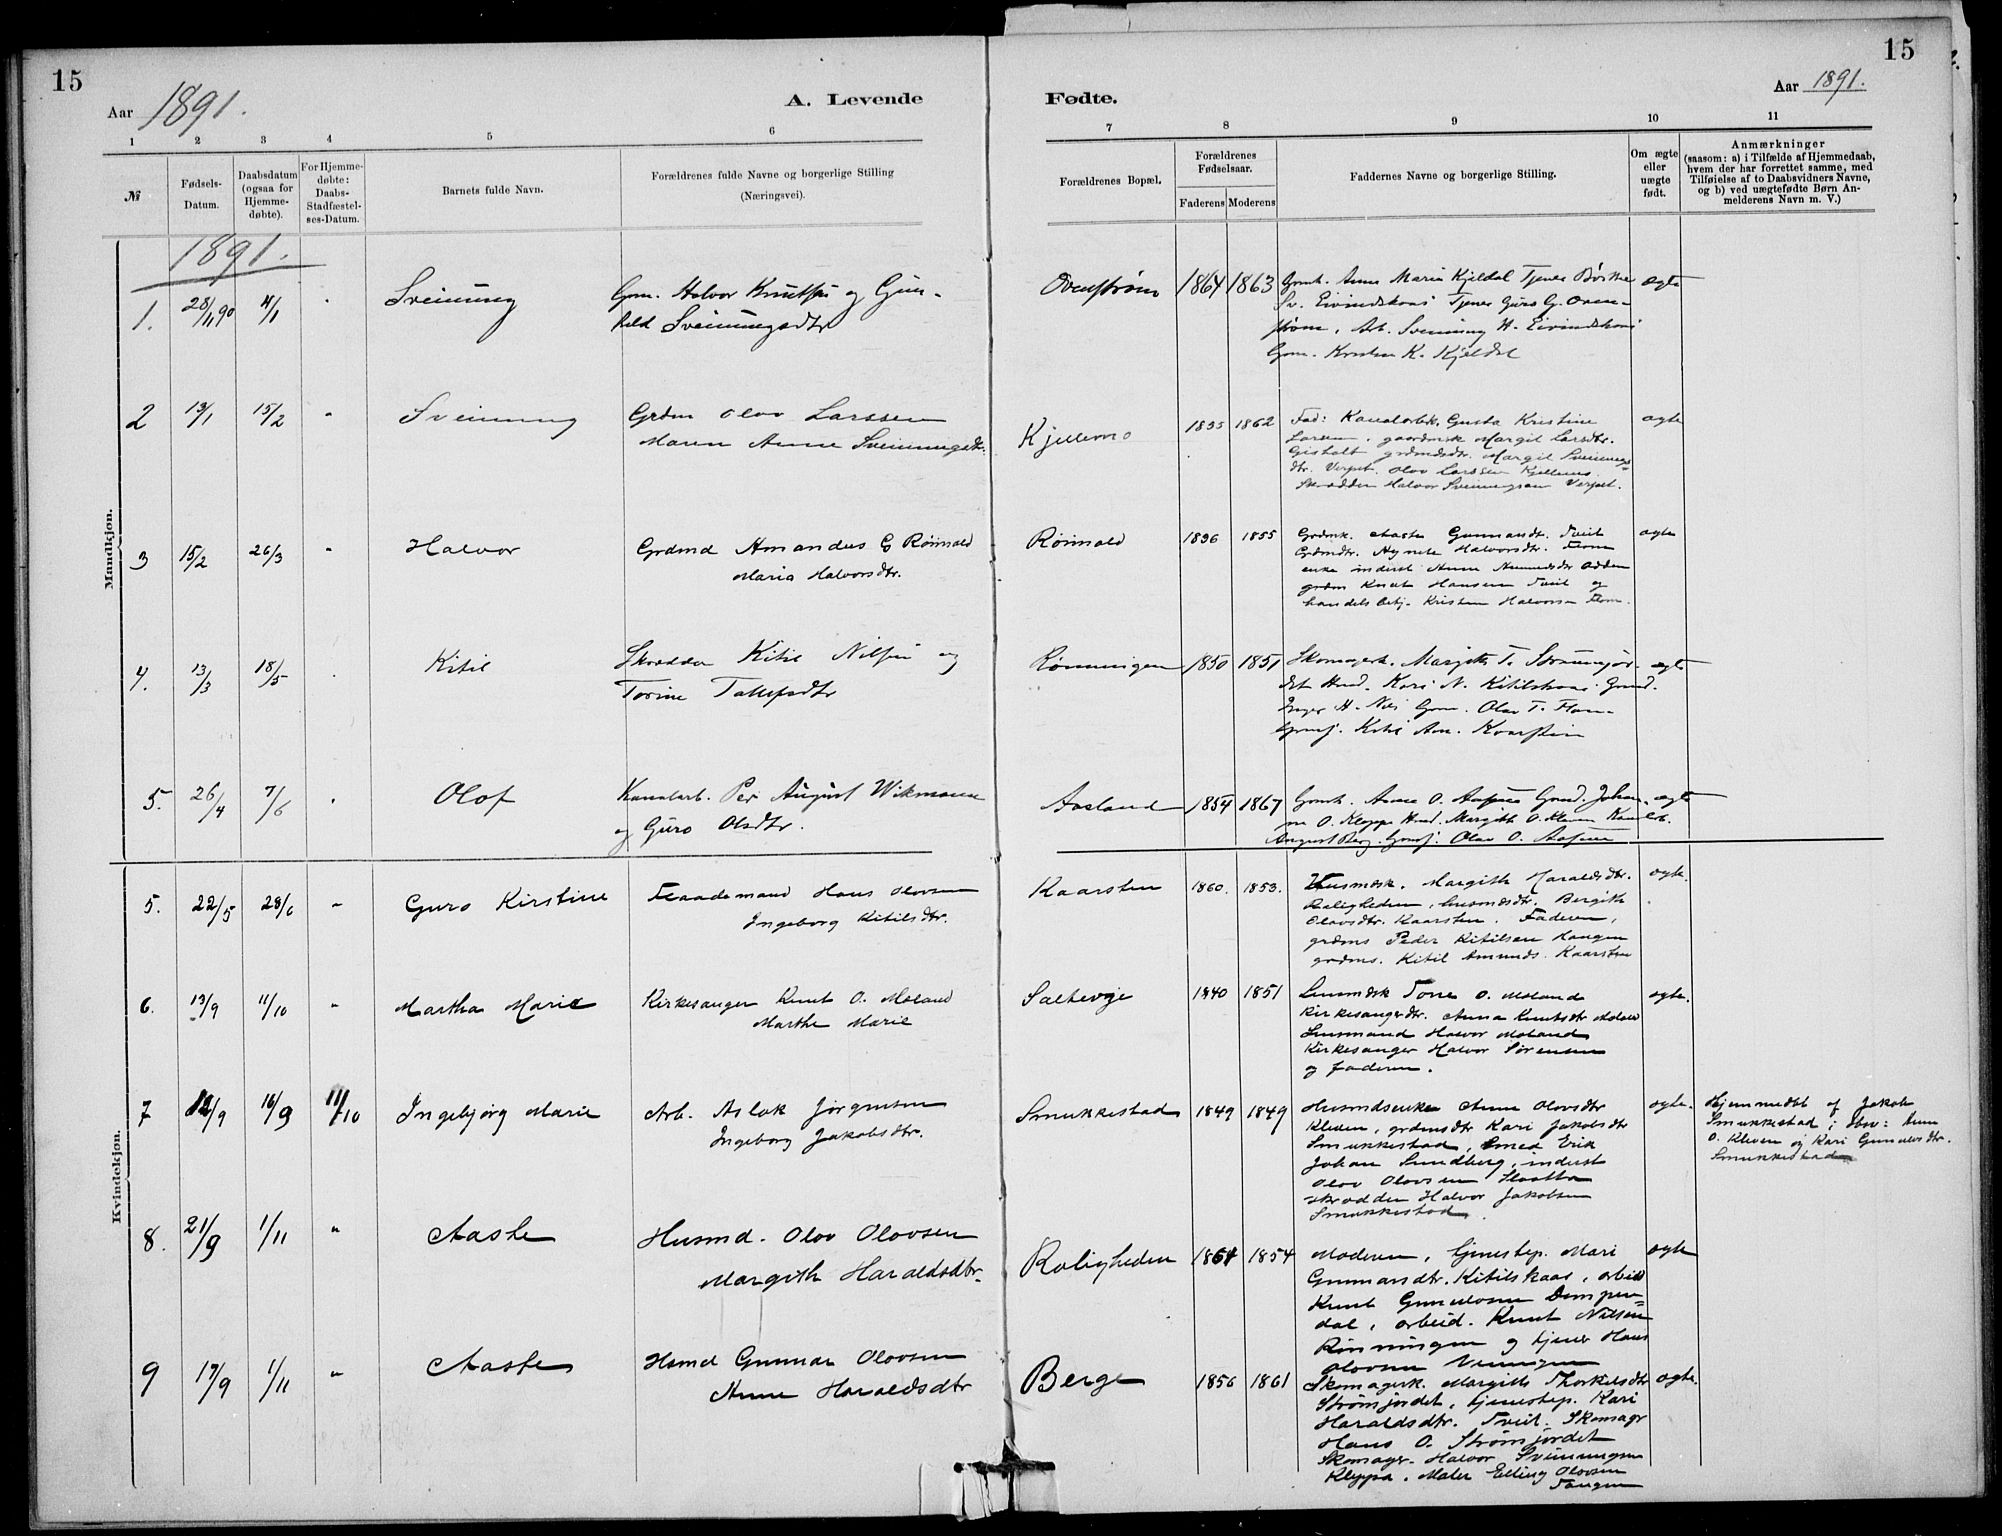 15
15
Aar 1891.
A. Levende
Fødte.
Aar 1891.
1 2 3 4 5 6 7 8 9 10 11
№
Fødsels-
Datum.
Daabsdatum
(ogsaa for
Hjemme-
døbte).
For Hjemme-
døbte:
Daabs-
Stadfæstel-
ses-Datum.
Barnets fulde Navn.
Forældrenes fulde Navne og borgerlige Stilling
(Næringsvei).
Forældrenes Bopæl.
Forældrenes
Fødselsaar.
Faderens Moderens
Faddernes Navne og borgerlige Stilling.
Om ægte
eller
uægte
født.
Anmærkninger
(saasom: a) i Tilfælde af Hjemmedaab,
hvem der har forrettet samme, med
Tilføielse af to Daabsvidners Navne,
og b) ved uægtefødte Børn An-
melderens Navn m. V.)
Mandkjøn.
1891.
1. 28/11 90 4/1 Sveinung
Gm. Halvor Knutsen og Gun-
hild Sveinungsdtr
1864 1863
Gmk. Anne Maria Kjeldal Tjener
Sv. Eivindskaas Tjener Guro G.
Arb. Sveinung H. Eivindskaas
Gm. Kristen K. Kjeldal
ægte
2 13/1 15/2 " Sveinung
Grdm Olav Larssen
Maren Anne Sveinungsdtr.
Kjillemo
1835 1862
Fad: Kanalarbk. Gusta Kristine
Larsen, gaardmsk Margit Larsdtr.
grdmdsdtr. Margit Sveinungs-
dtr. Verpet. Olav Larssen Kjellemo
Skrædder Halvor Sveinungsen Verpet.
ægte
3 15/2 26/3 " Halvor
Grdmd Amandus G Rönnald
Maria Halvorsdtr.
Rönnald
1836 1855
Grdmk. Aaste Gunnarsdtr. Tveit
Grdmdtr. Agnete Halvorsdtr. Flom
enke inderst Anne
grdm Knut Hansen Tveit og
handelsbetj. Kristen Halvorsen Flom.
ægte
4. 13/3 18/5 Kitil
Skrædder Kitil Nilsen og
Torine Tallefsdtr
Rönningen
1850 1851
Skomagerk. Margith T. Strømjor-
det Kari N. Kitilskaas
Inger H. Gm. Olav T. Flom
Kitil Am. Kaarstein
ægte
5. 26/4 7/6 Olof
Kanalarb. Per August Wikmann
og Guro Olsdtr.
Aasland
1854 1867
Gmk. Anne O. Johan-
ne O. Kleppe Margith O. Kanalarb.
August Berg. Olav O.
ægte
Kvindekjøn.
5. 22/5 28/6 " Guro Kirstine
Hans Olavsen
Ingeborg Kitilsdtr.
Kaarsten
1860. 1853.
Husmdsk. Margith Haraldsdtr.
Roligheden, husmdsdtr. Bergith
Olavsdtr. Kaarsten. Faderen,
grdms Peder Kitilsen Haugen
grdms. Kitil Amunds. Kaarsten
ægte.
6. 13/9 11/10 " Martha Marie
Kirkesanger Knut O. Moland
Marthe Marie
Saltevje
1840 1851
Lensmdsk Tone O. Moland
Kirkesangerdtr. Anna Knutsdtr Moland
Lensmand Halvor Moland
Kirkesanger Halvor Sørensen
og faderen.
ægte.
7 12/9 16/9 11/10 Ingebjørg Marie
Arb. Aslak Jørgensen
Ingeborg Jakobsdtr.
Smukkestad
1849 1849
Husmdsenke Anne Olavsdtr
Kleven, grdmsdtr Kari Jakobsdtr
Smukkestad, Smed Erik
Johan Sundberg, inderst
Olav Olavsen
skrædder Halvor Jakobsen
Smukkestad.
ægte.
Hjemmedbt af Jakob
Smukkestad; Anne
O. Kleven og Kari Gunulvsdtr.
Smukkestad
8. 21/9 1/11 " Aaste
Husmd. Olav Olavsen
Margith Haraldsdtr.
Roligheden
1864 1854
Moderen, tjenestep. Mari
Gunnarsdtr. Kitilskaas, arbeid
Knut Gunulvsen Dampen-
dal, arbeid. Knut Nilsen
Rönningen og tjener Hans
Olavsen
ægte
9 17/9 1/11 " Aaste
Hsmd Gunnar Olavsen
Anne Haraldsdtr
Berge
1856 1861
Skomagerk. Margith Thorkelsdtr
Strømjordet, tjenestep. Kari
Haraldsdtr. Tveit. Skomagr
Hans O. Strømjordet
Skomager. Halvor Sveinungsen
Kleppa. Maler Elling Olavsen
Tangen
ægte.